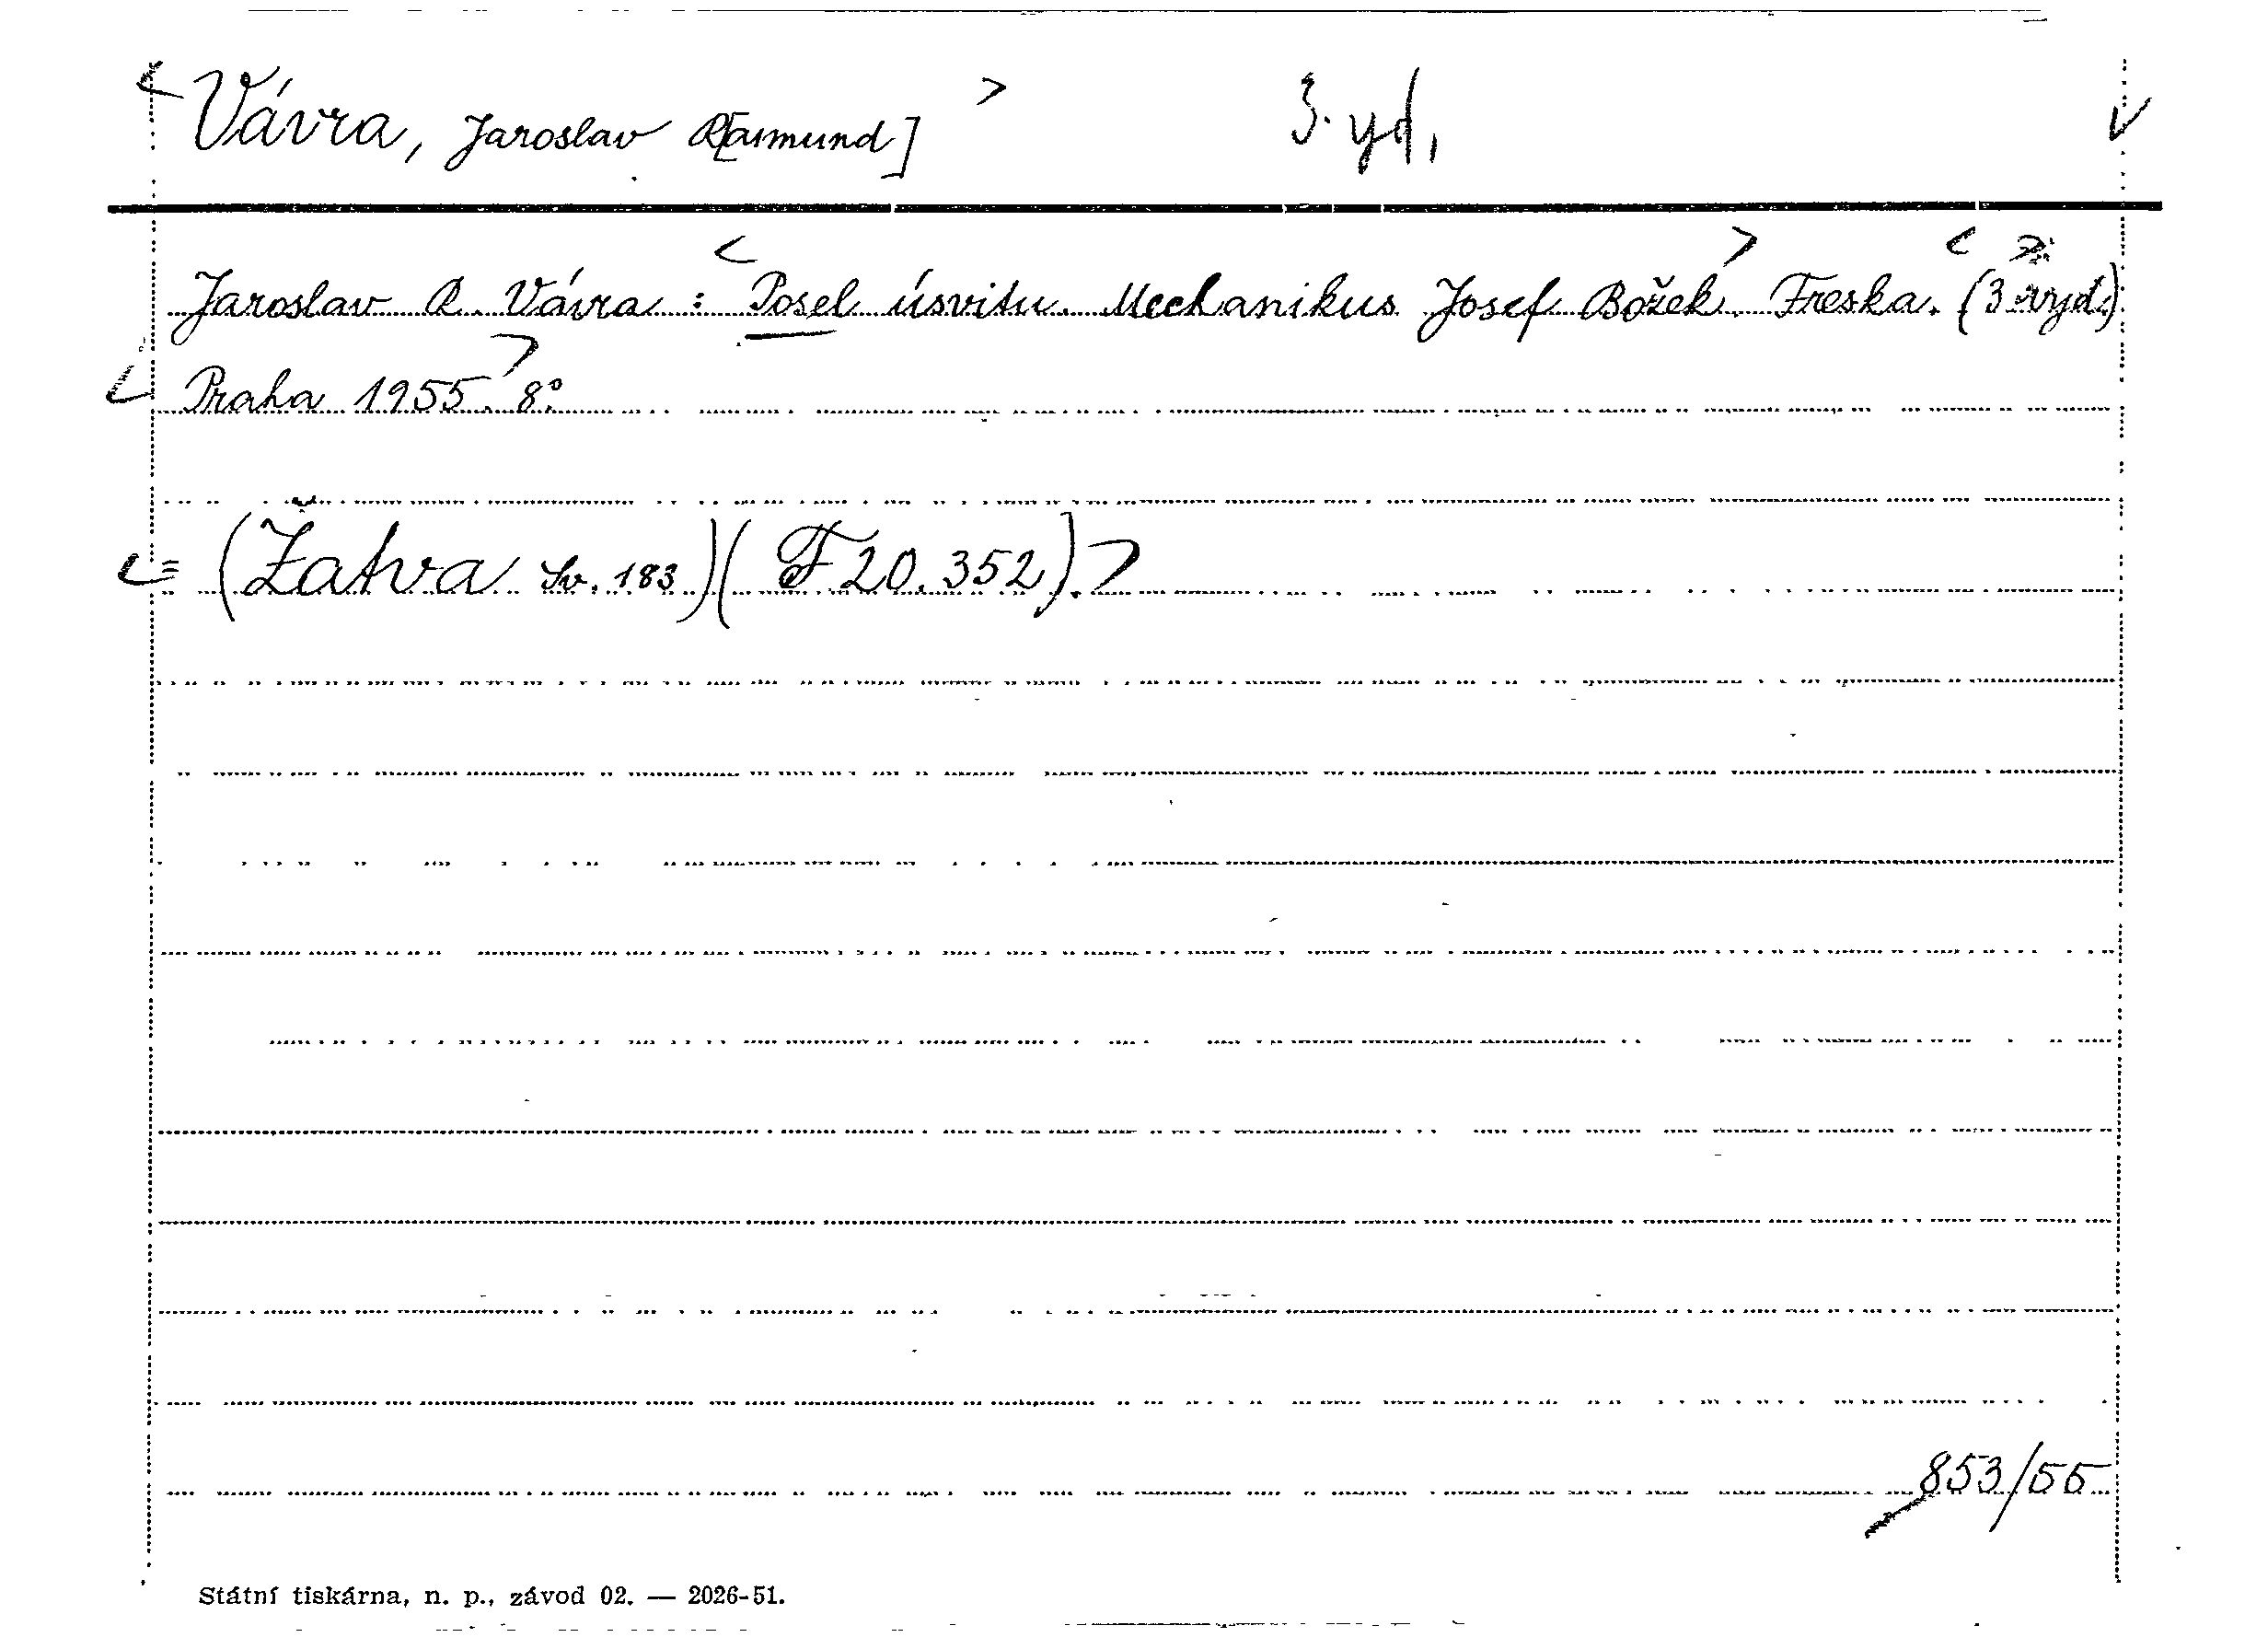 < Vávra, Jaroslav R[aimund] > 3. yd,
Jaroslav R. Vávra : < Posel úsvitu. Mechanikus Josef Božek. > Freska. < (3 vyd.)
< Praha 1955. > 8°.
< = (Žatva sv. 183)( F 20.352). >
853/55
Státní tiskárna, n. p., závod 02. — 2026-51.